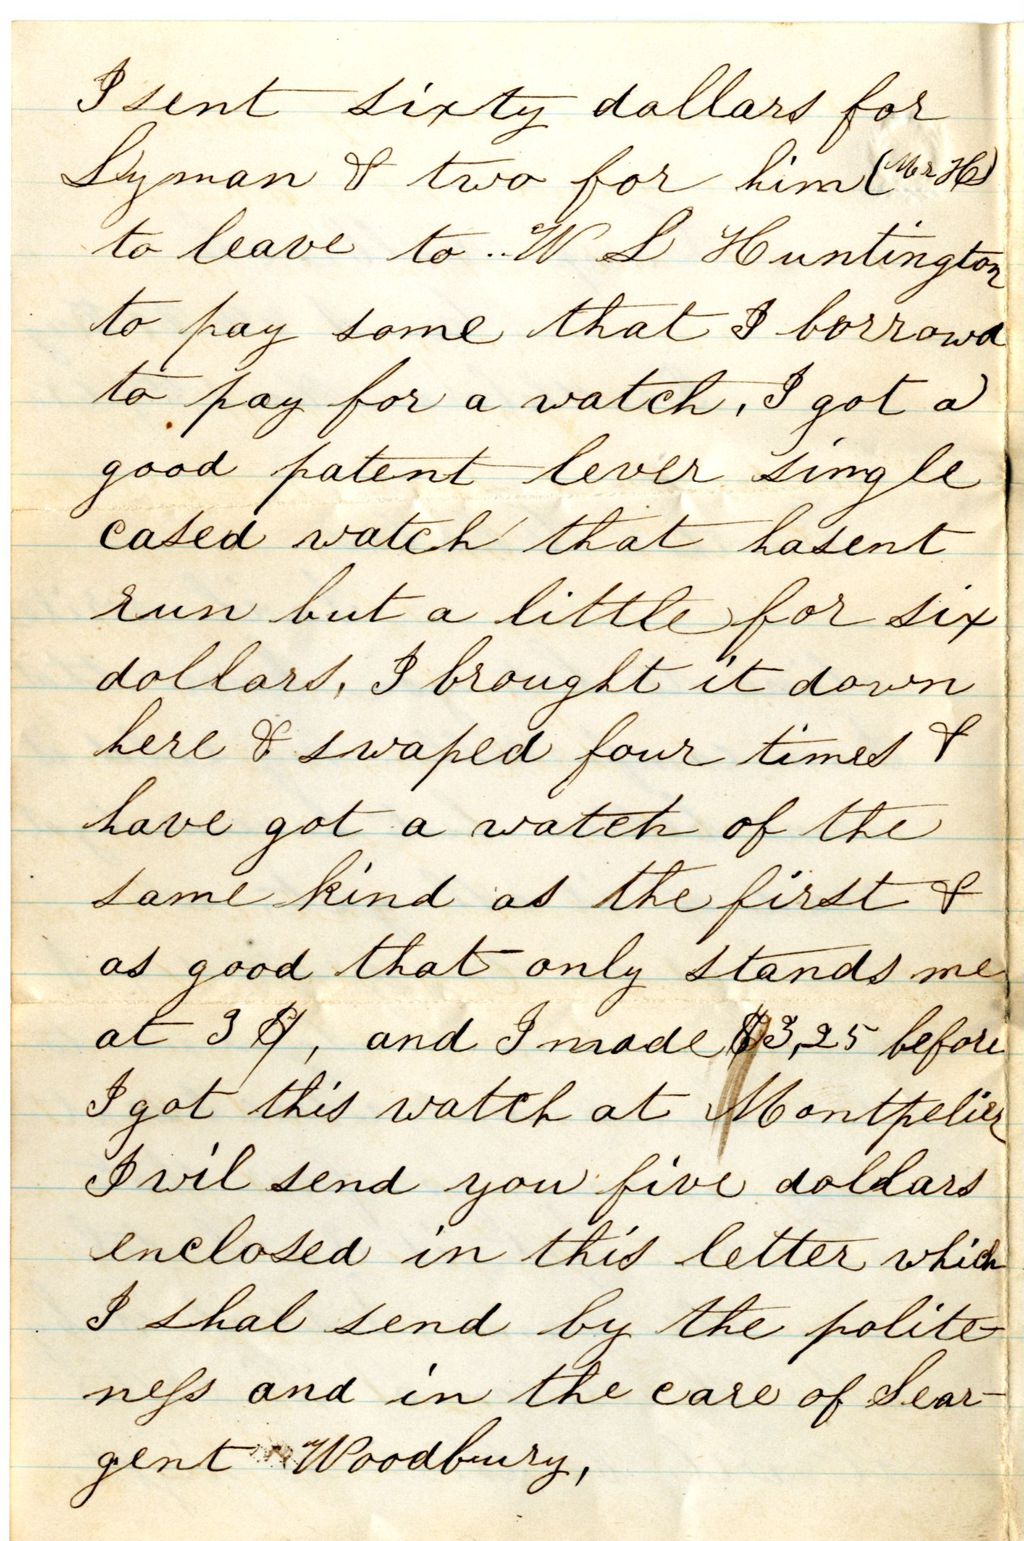 I sent sixty dollars for
Lyman & two for him (Mr H)
to leave to W L Huntington
to pay some that I borrowd
to pay for a watch, I got a
good patent lever single
cased watch that hasent
run but a little for six
dollars, I brought it down
here & swaped four times &
have got a watch of the
same kind as the first &
as good that only stands me
at 3 $, and I made $3,25 before
I got this watch at Montpelier
I wil send you five dollars
enclosed in this letter which
I shal send by the polite-
ness and in the care of Sear-
gent Woodbury,